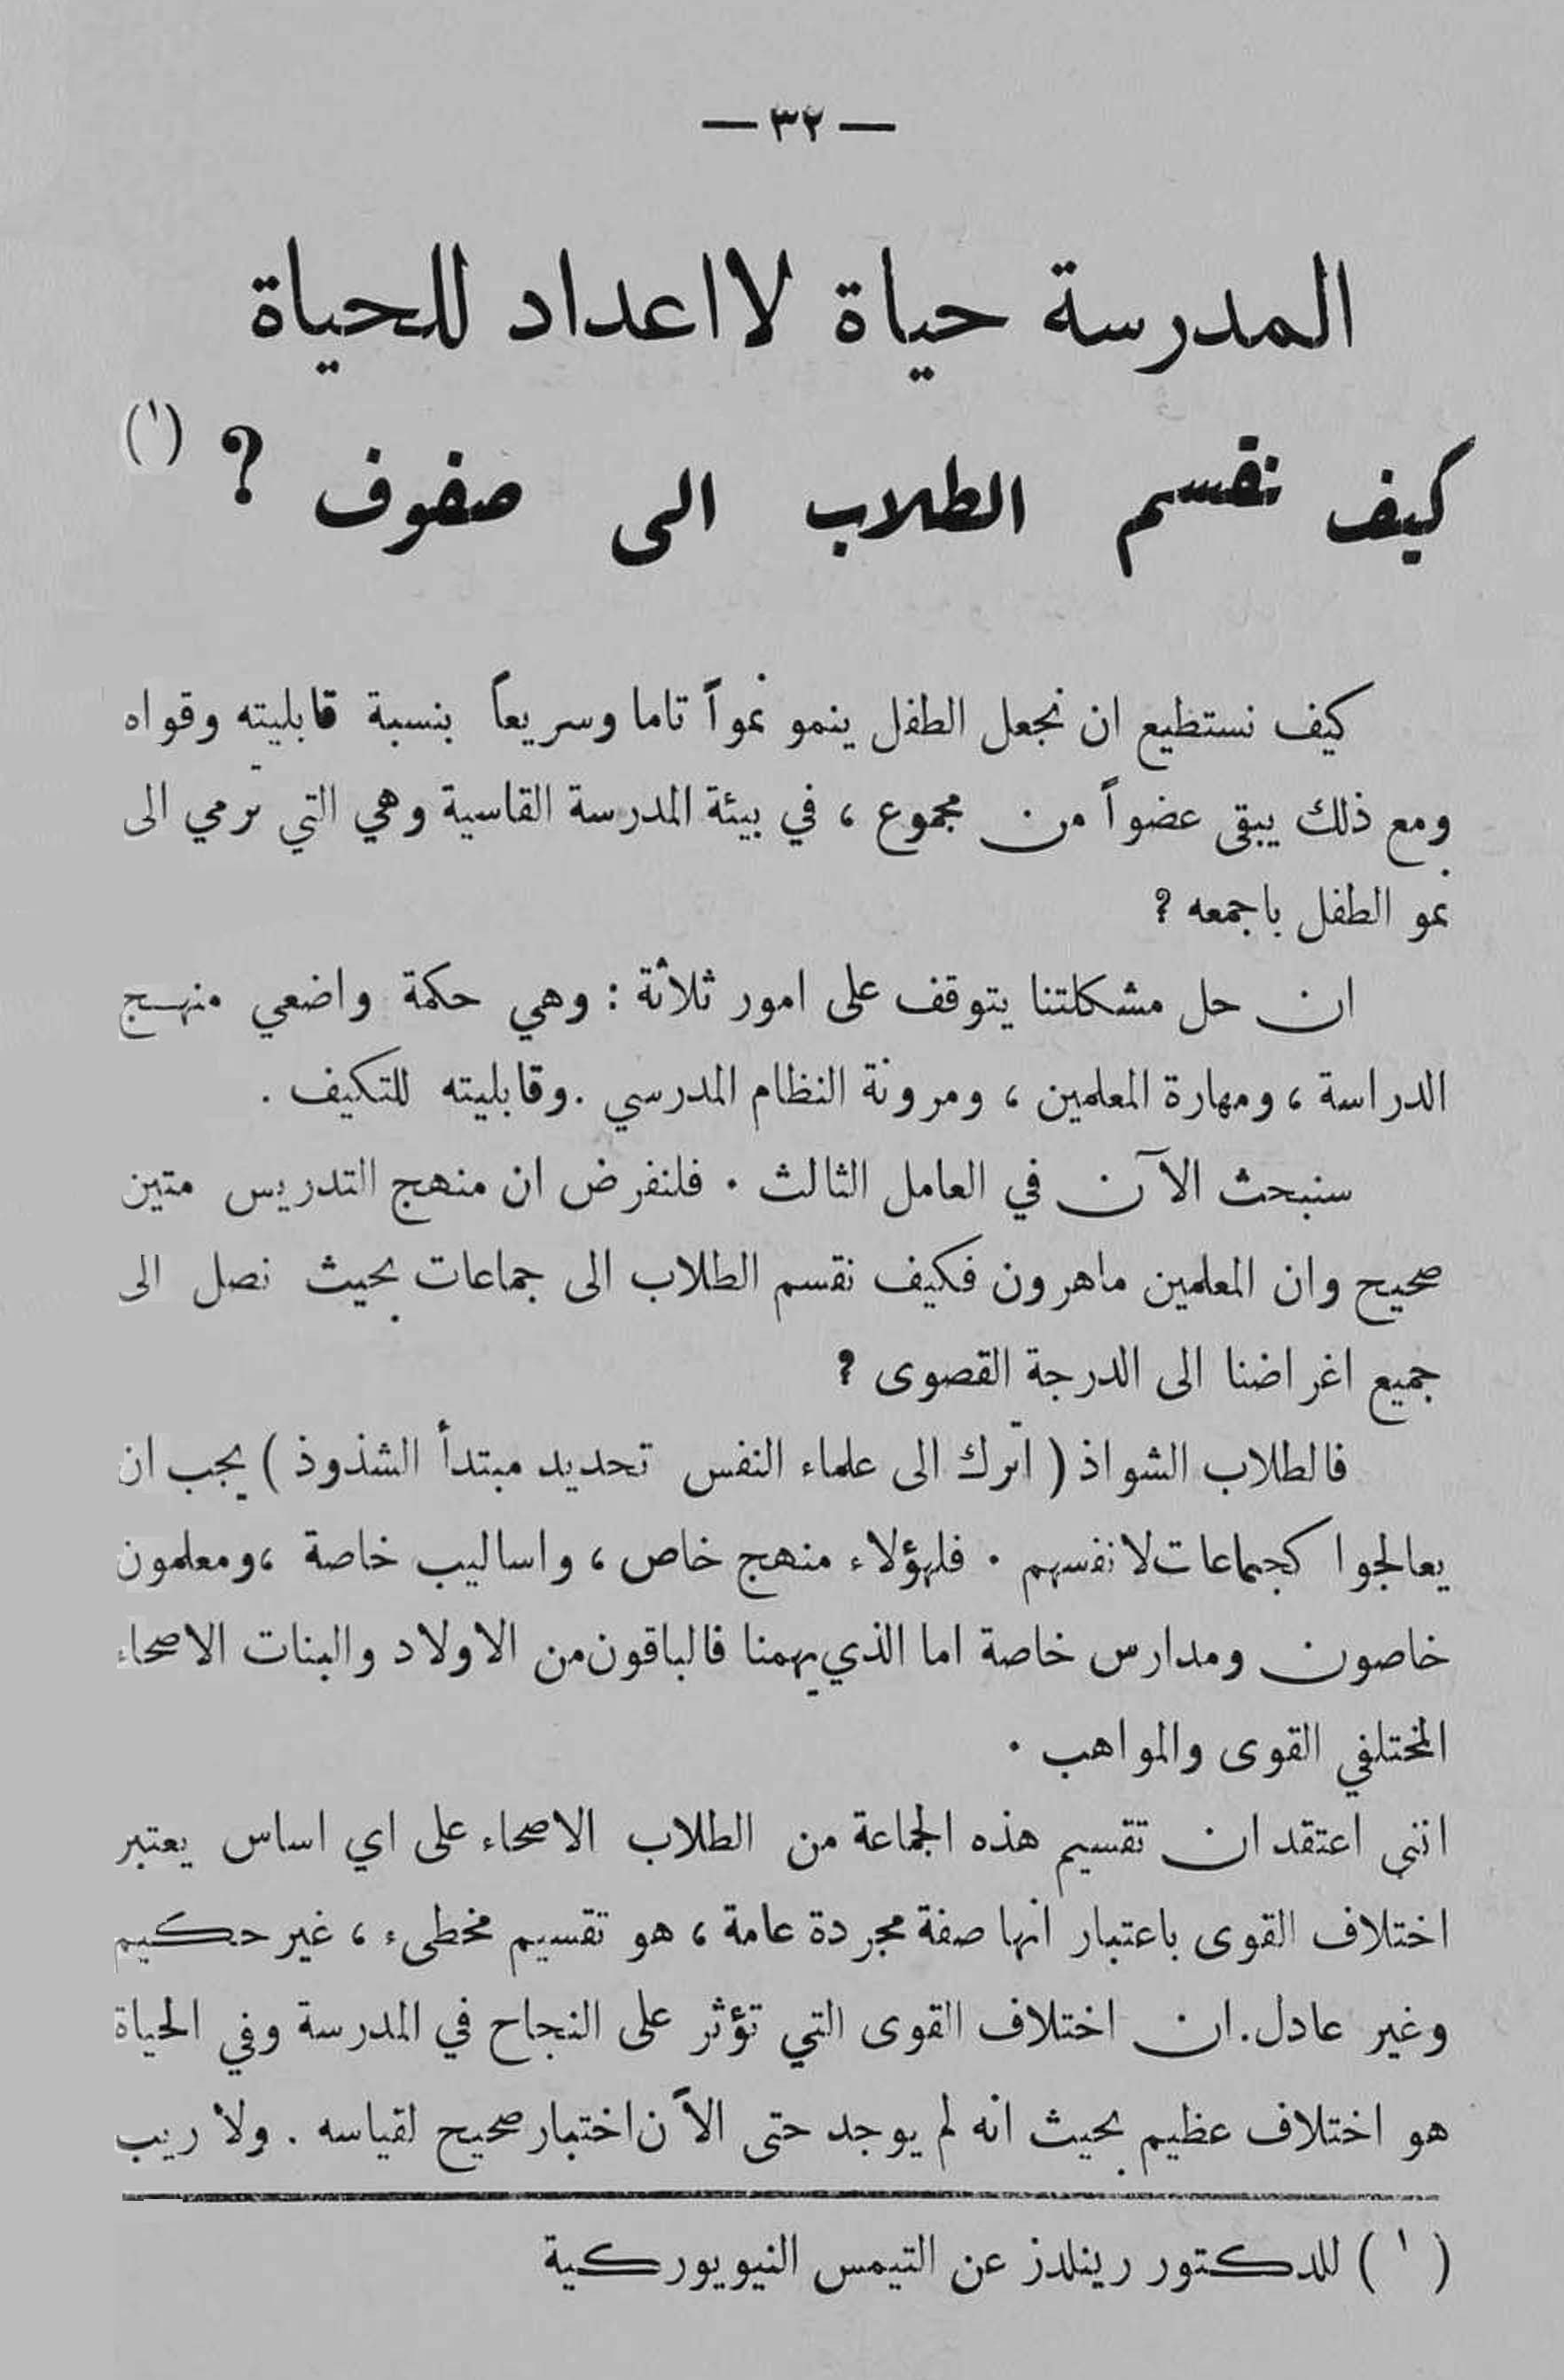 — ٣٢ —
المدرسة حياة لا اعداد للحياة
كيف نقسم الطلاب الى صفوف ؟ (١)
كيف نستطيع ان نجعل الطفل ينمو نمواً تاما وسريعاً بنسبة قابليته وقواه
ومع ذلك يبقى عضواً من مجموع ، في بيئة المدرسة القاسية وهي التي ترمي الى
نمو الطفل باجمعه ؟
ان حل مشكلتنا يتوقف على امور ثلاثة : وهي حكمة واضعي منهج
الدراسة ، ومهارة المعلمين ، ومرونة النظام المدرسي . وقابليته للتكيف .
سنبحث الآن في العامل الثالث . فلنفرض ان منهج التدريس متين
صحيح وان المعلمين ماهرون فكيف نقسم الطلاب الى جماعات بحيث نصل الى
جميع اغراضنا الى الدرجة القصوى ؟
فالطلاب الشواذ ( اترك الى علماء النفس تحديد مبتدأ الشذوذ ) يجب ان
يعالجوا كجماعات لانفسهم . فلهؤلاء منهج خاص ، واساليب خاصة ، ومعلمون
خاصون ومدارس خاصة اما الذي يهمنا فالباقون من الاولاد والبنات الاصحاء
المختلفي القوى والمواهب .
انني اعتقد ان تقسيم هذه الجماعة من الطلاب الاصحاء على اي اساس يعتبر
اختلاف القوى باعتبار انها صفة مجردة عامة ، هو تقسيم مخطىء ، غير حكيم
وغير عادل . ان اختلاف القوى التي تؤثر على النجاح في المدرسة وفي الحياة
هو اختلاف عظيم بحيث انه لم يوجد حتى الآن اختبار صحيح لقياسه . ولا ريب
( ١ ) للدكتور رينلدز عن التيمس النيويوركية